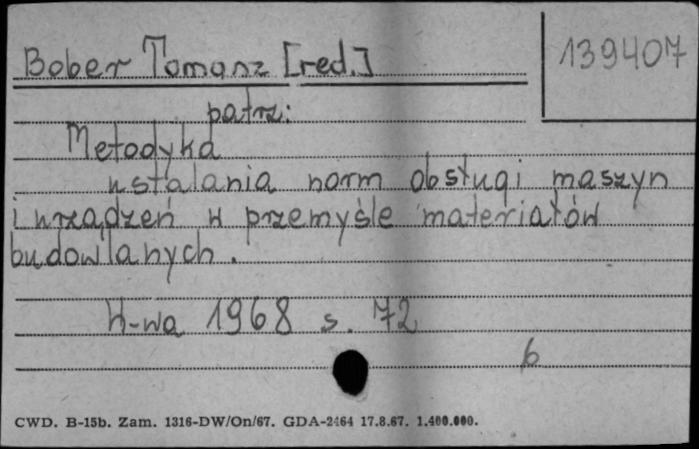 Bober Tomasz [red.]
139407
patrz:
Metodyka
ustalania norm obsługi maszyn
i urządzeń w przemyśle materiałów
budowlanych.
W-wa 1968 s. 72
b
CWD. B-15b. Zam. 1316-DW/On/67. GDA-2464 17.8.67. 1.400.000.